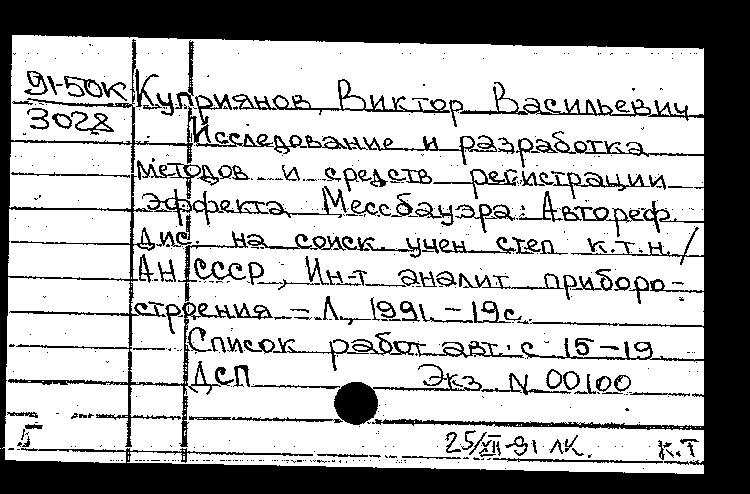 91-50К Куприянов, Виктор Васильевич
3028 Исследование и разработка
методов и средств регистрации
эффекта Мессбауэра: Автореф.
дис. на соиск. учен степ к.т.н./
АН СССР, Ин-т аналит приборо-
строения – Л., 1991. – 19с.
Список работ авт.: с 15–19
ДСП Экз N 00100
Б 25/XII-91 ЛК. К.Т